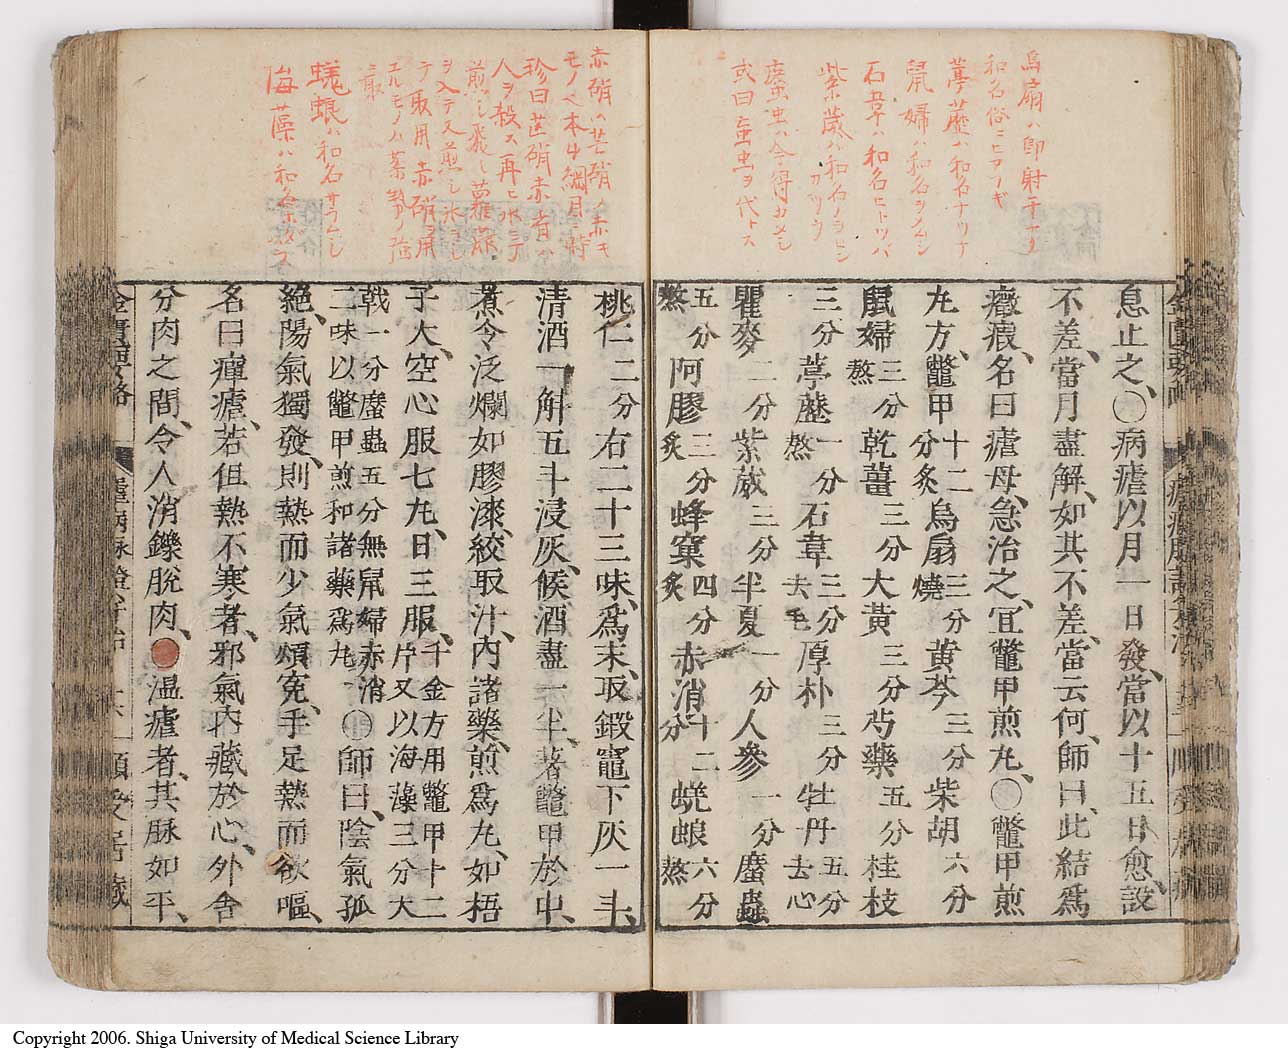 烏扇ハ即射干ナリ
和名俗ニヒアフギ
葶藶ハ和名ナツナ
鼠婦ハ和名ヲメムシ
石葦ハ和名ヒトツバ
紫葳ハ和名ノウゼン
カツラ
䗪虫ハ今得ガタシ
或曰䖟虫ヲ代トス
息止之、○病瘧以月一日發、當以十五日愈、設
不差、當月盡解、如其不差、當云何、師曰、此結爲
癥瘕、名曰瘧母、急治之、宜鼈甲煎丸、○鼈甲煎
丸方、鼈甲十二分炙烏扇三分燒黃芩三分柴胡六分
鼠婦三分熬乾薑三分大黃三分芍藥五分桂枝
三分葶藶一分熬石韋三分去毛厚朴三分牡丹五分去心
瞿麥二分紫葳三分半夏一分人參一分䗪蟲
五分熬阿膠三分炙蜂窠四分炙赤消十二分蜣蜋六分熬
赤硝ハ芒硝ノ赤キ
モノ也本艸綱目時
珍曰芒硝赤者ハ
人ヲ殺ス再ヒ水ニテ
ヲ入テ又煎シ
テ取用赤硝ヲ用
取
蜣蜋ハ和名
海藻ハ和名
桃仁二分右二十三味、爲末、取鍛竈下灰一斗、
清酒一斛五斗浸灰、候酒盡一半、著鼈甲於中、
煮令泛爛如膠漆、絞取汁、內諸藥、煎爲丸、如梧
子大、空心服七丸、日三服、千金方用鼈甲十二片又以海藻三分大
戟一分䗪蟲五分無鼠婦赤消二味以鼈甲煎和諸藥爲丸○師曰、陰氣孤
絕、陽氣獨發、則熱而少氣煩冤、手足熱而欲嘔、
名曰癉瘧、若但熱不寒者、邪氣內藏於心、外舍
分肉之間、令人消鑠脫肉、●溫瘧者、其脉如平、
金匱要略
Copyright 2006. Shiga University of Medical Science Library